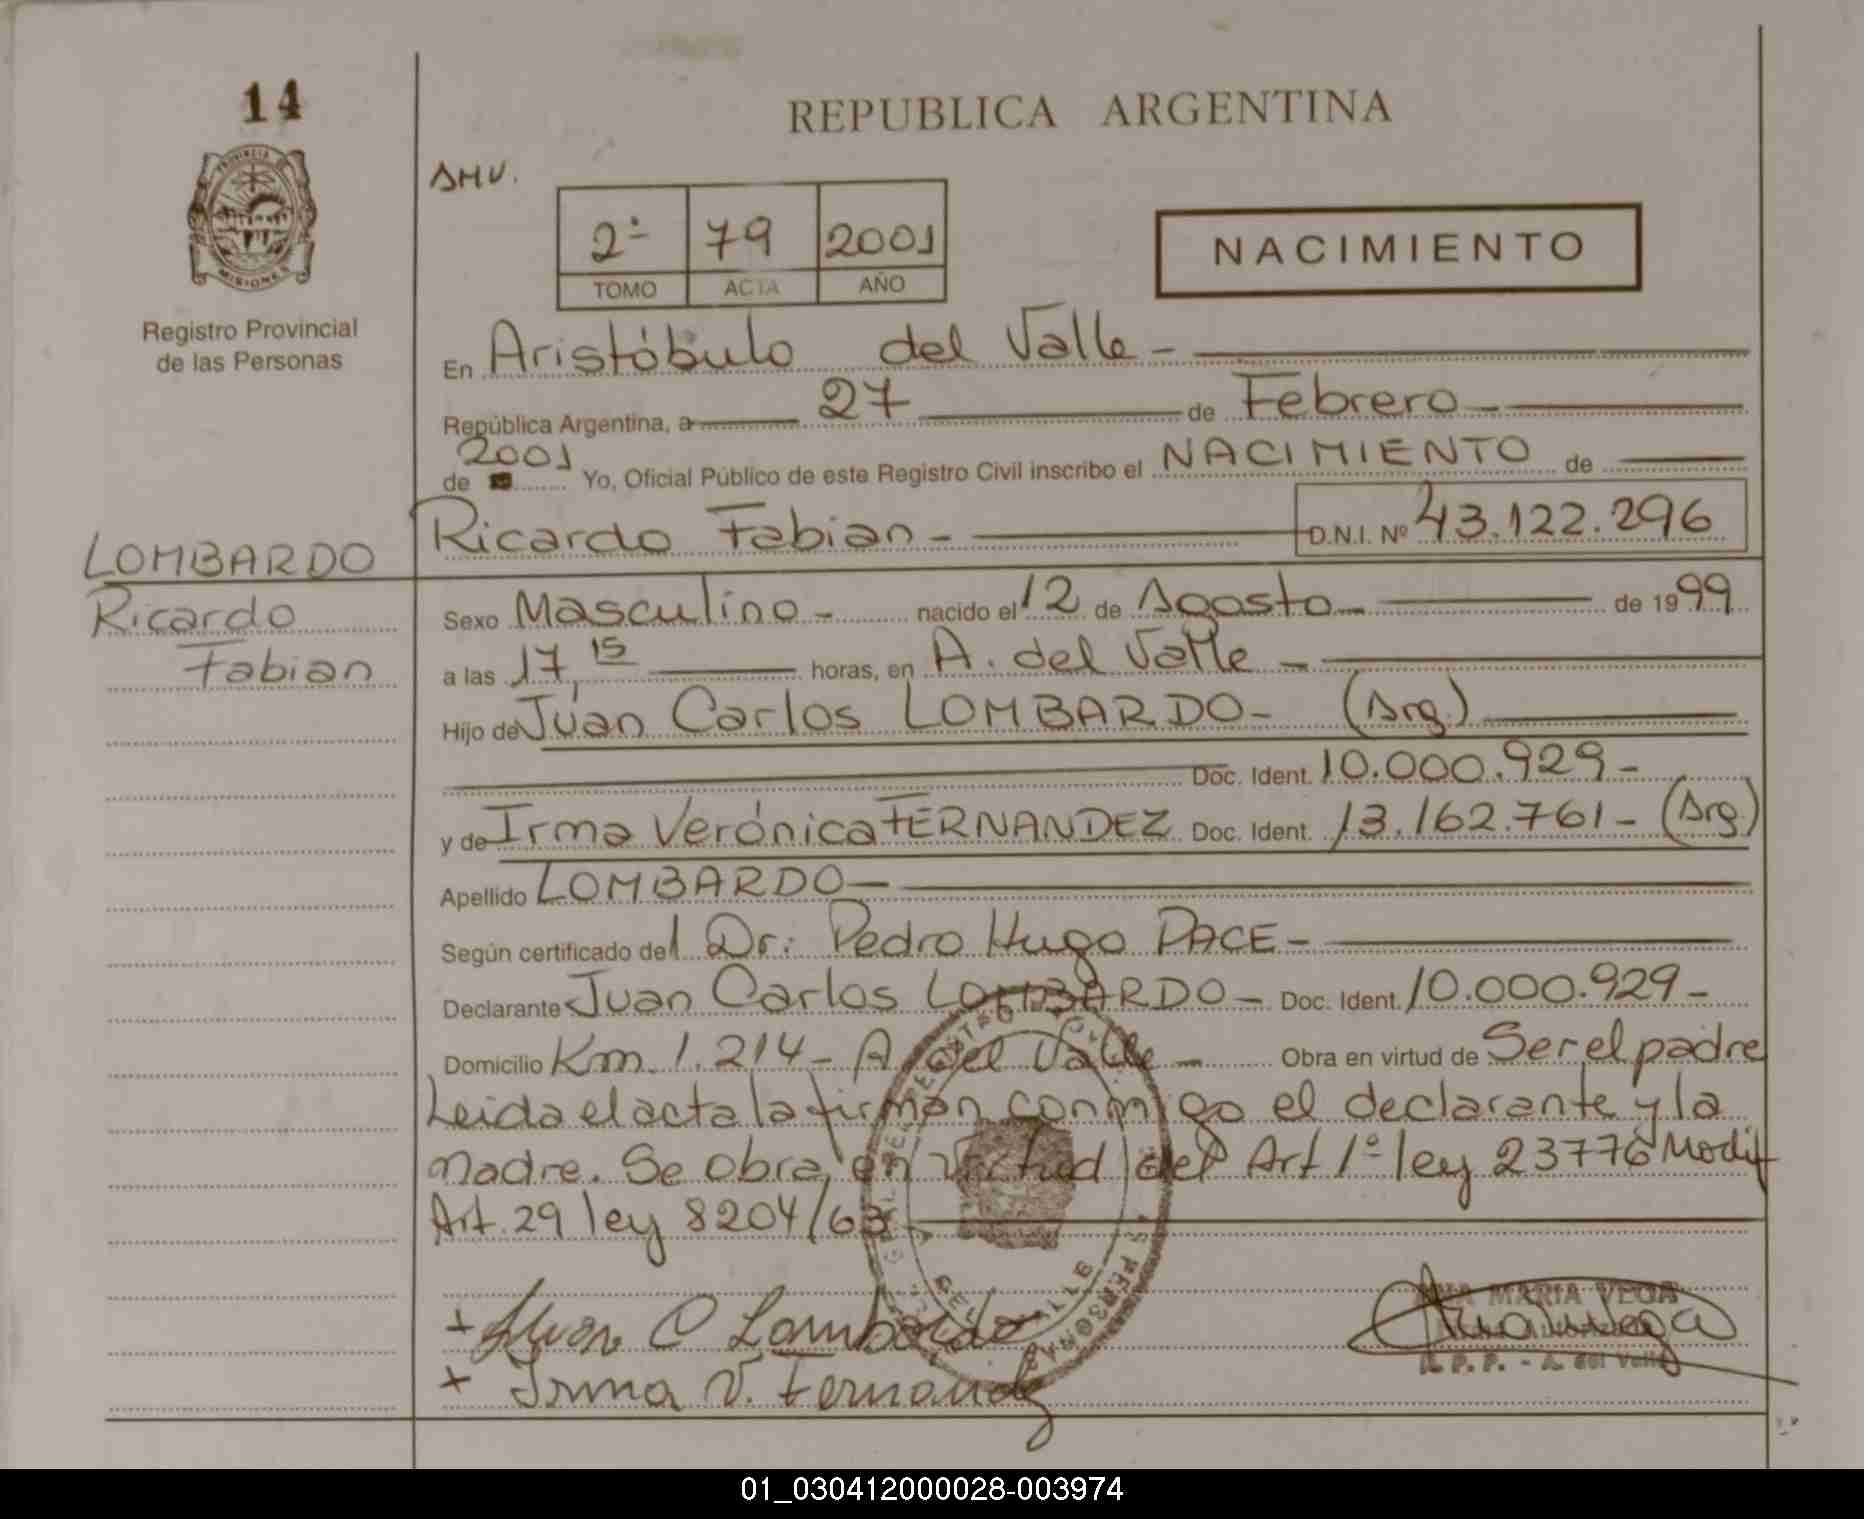 14
REPUBLICA ARGENTINA
PROVINCIA DE
MISIONES
Registro Provincial
de las Personas
AMV.
2ª 79 2001
TOMO ACTA AÑO
NACIMIENTO
En Aristóbulo del Valle -
República Argentina, a 27 de Febrero -
de 2001 Yo, Oficial Público de este Registro Civil inscribo el NACIMIENTO de
Ricardo Fabian - D.N.I. Nº 43.122.296
LOMBARDO
Ricardo
Fabian
Sexo Masculino - nacido el 12 de Agosto - de 1999
a las 17,15 horas, en A. del Valle -
Hijo de Juan Carlos LOMBARDO - (Arg.)
Doc. Ident. 10.000.929 -
y de Irma Verónica FERNANDEZ Doc. Ident. 13.162.761 - (Arg.)
Apellido LOMBARDO -
Según certificado del Dr: Pedro Hugo PACE -
Declarante Juan Carlos LOMBARDO - Doc. Ident. 10.000.929 -
Domicilio Km. 1.214 - A. del Valle - Obra en virtud de Ser el padre
Leida el acta la firman conmigo el declarante y la
madre. Se obra en virtud del Art 1º ley 23776 Modif
Art. 29 ley 8204/63
+ Juan C Lombardo
+ Irma V. Fernandez
ANA MARIA VEGA
R. P. P. - A. del Valle
01_030412000028-003974